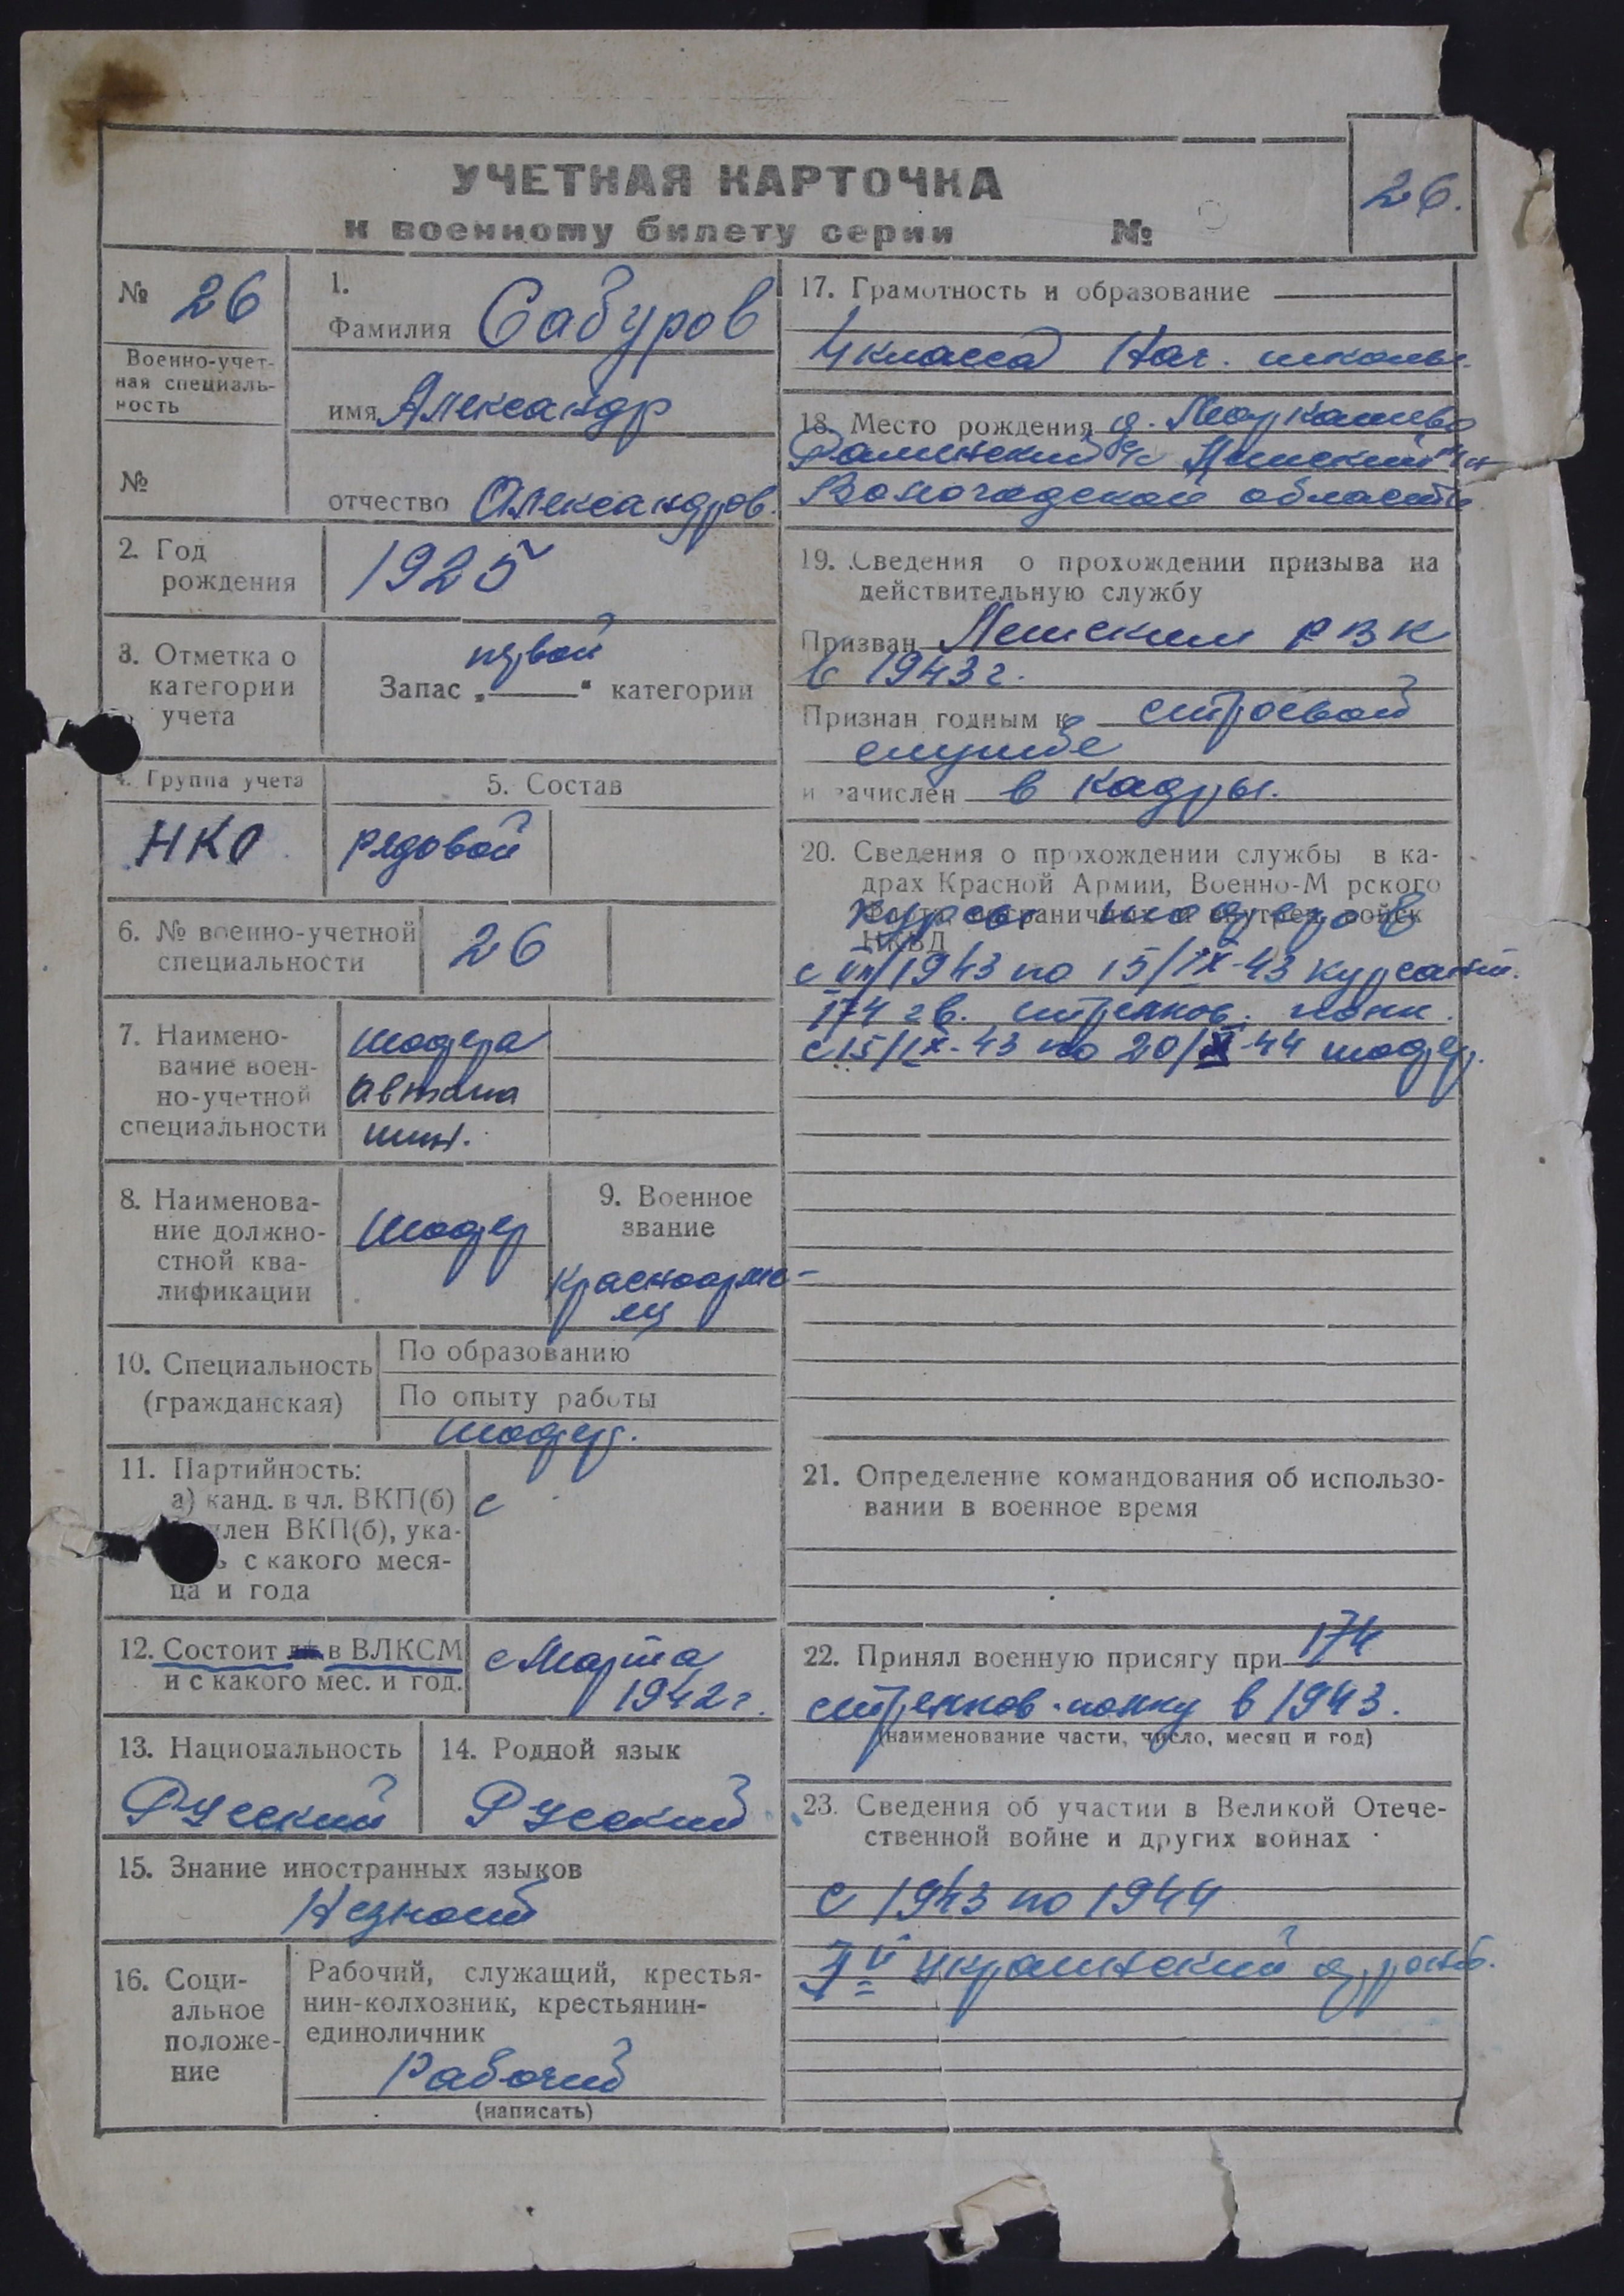 УЧЕТНАЯ КАРТОЧКА
к военному билету серии №
26.
№ 26
Военно-учет-
ная специаль-
ность
№
1.
Фамилия Сабуров
имя Александр
отчество Александров.
2. Год
рождения
1925
3. Отметка о
категории
учета
первой
Запас „ “ категории
4. Группа учета
НКО
5. Состав
рядовой
6. № военно-учетной
специальности
26
7. Наимено-
вание воен-
но-учетной
специальности
шофера
автома
шин.
8. Наименова-
ние должно-
стной ква-
лификации
шофер
9. Военное
звание
красноарме-
ец
10. Специальность
(гражданская)
По образованию
По опыту работы
шофер.
11. Партийность:
а) канд. в чл. ВКП(б)
член ВКП(б), ука-
ь с какого меся-
ца и года
с
12. Состоит в ВЛКСМ
и с какого мес. и год.
с Марта
1942 г.
13. Национальность
Русский
14. Родной язык
Русский
15. Знание иностранных языков
Незнает
16. Соци-
альное
положе-
ние
Рабочий, служащий, крестья-
нин-колхозник, крестьянин-
единоличник
Рабочий
(написать)
17. Грамотность и образование
4 класса Нач. школы.
18. Место рождения д.
с/с
Вологодской области
19. Сведения о прохождении призыва на
действительную службу
Призван РВК
в 1943 г.
Признан годным к строевой
службе
и зачислен в кадры.
20. Сведения о прохождении службы в ка-
драх Красной Армии, Военно-М рского
Флота, пограничных и внутрен. войск
НКВД
Курсы шоферов
с VII/1943 по 15/IX-43 курсант.
174 гв. стрелков. полк.
с 15/IX-43 по 20/XI-44 шофер.
21. Определение командования об использо-
вании в военное время
22. Принял военную присягу при 174
стрелков. полку в 1943.
(наименование части, число, месяц и год)
23. Сведения об участии в Великой Отече-
ственной войне и других войнах
с 1943 по 1944
украинский фронт.